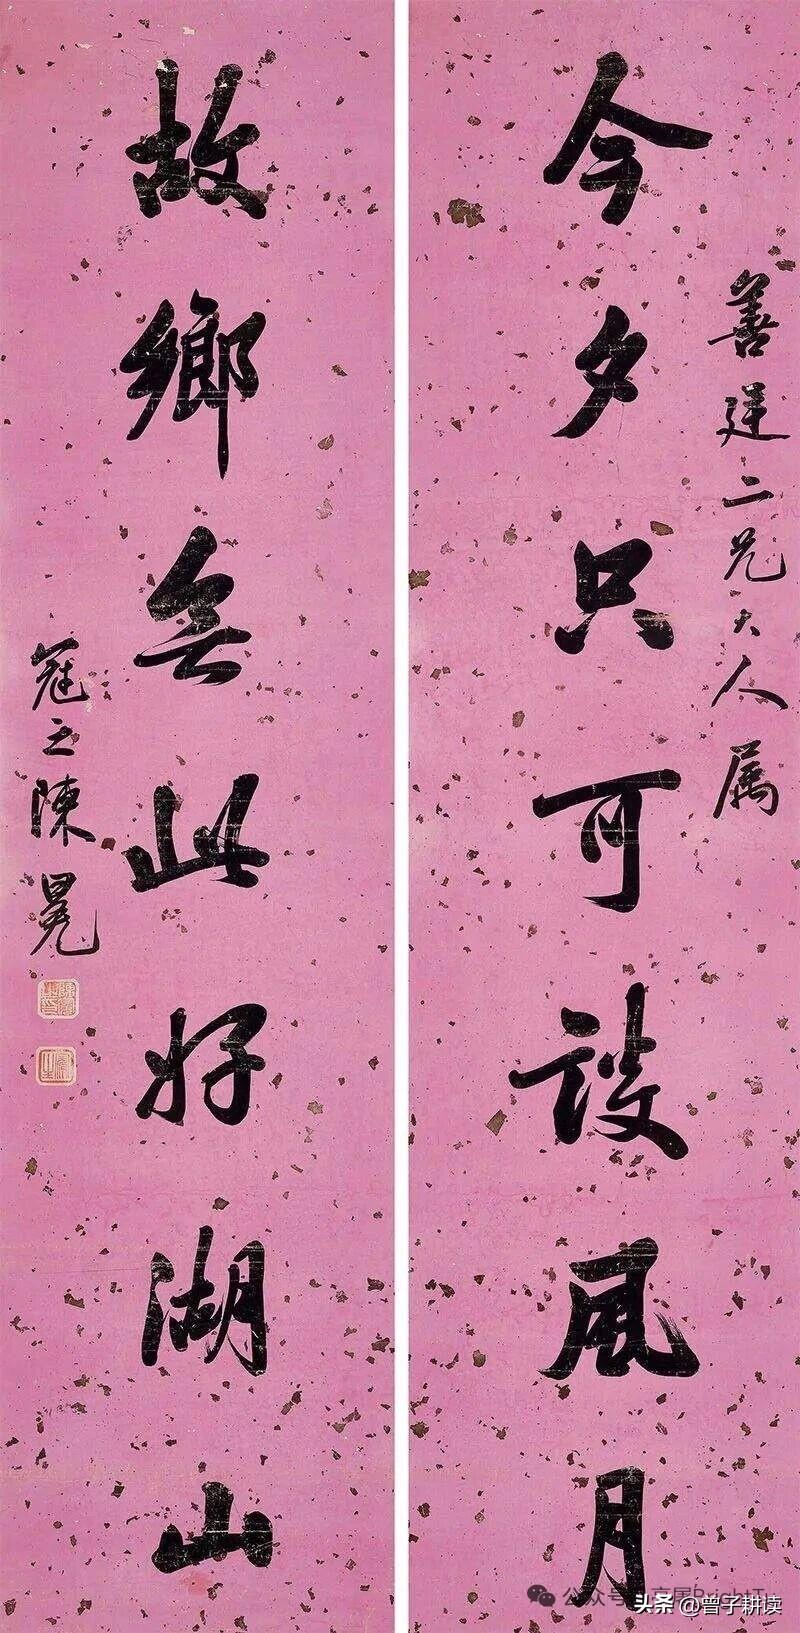 善廷二兄大人属
今夕只可談風月
故鄉無此好湖山
冠生陳冕
公众号
头条 @曾子耕读